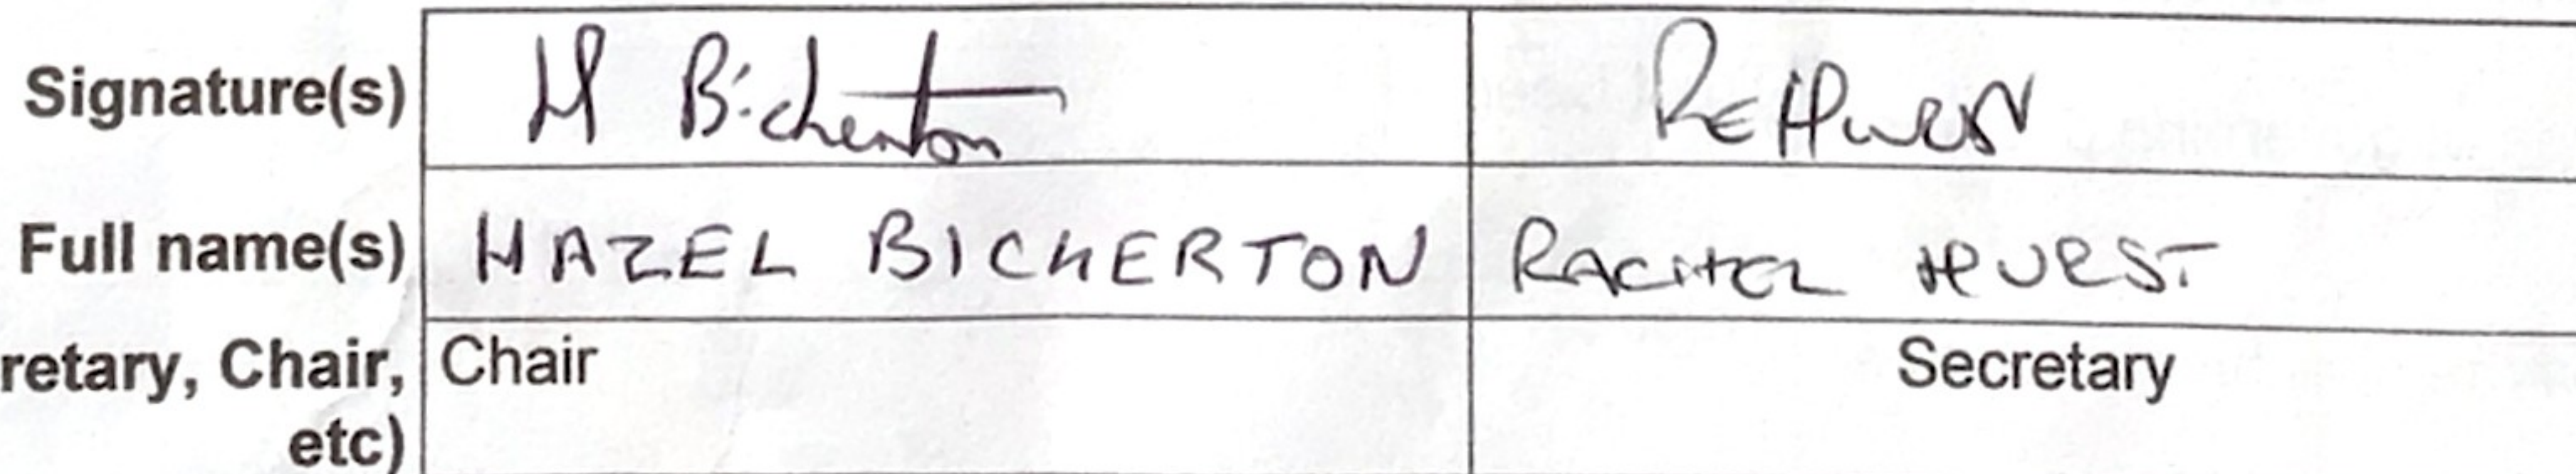 Signature(s) H Bickerton REHurst
Full name(s) HAZEL BICKERTON RACHEL HURST
retary, Chair, Chair Secretary
etc)